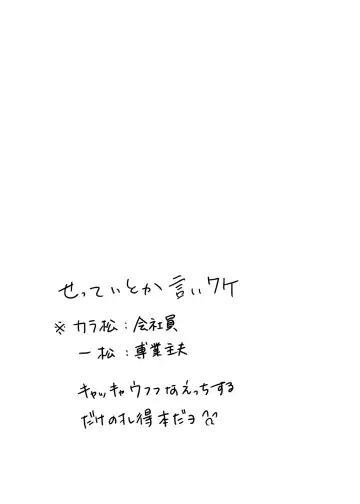 せっていとか言いワケ
※ カラ松：会社員
一松：専業主夫
キャッキャウフフなえっちする
だけのお得本だヨ